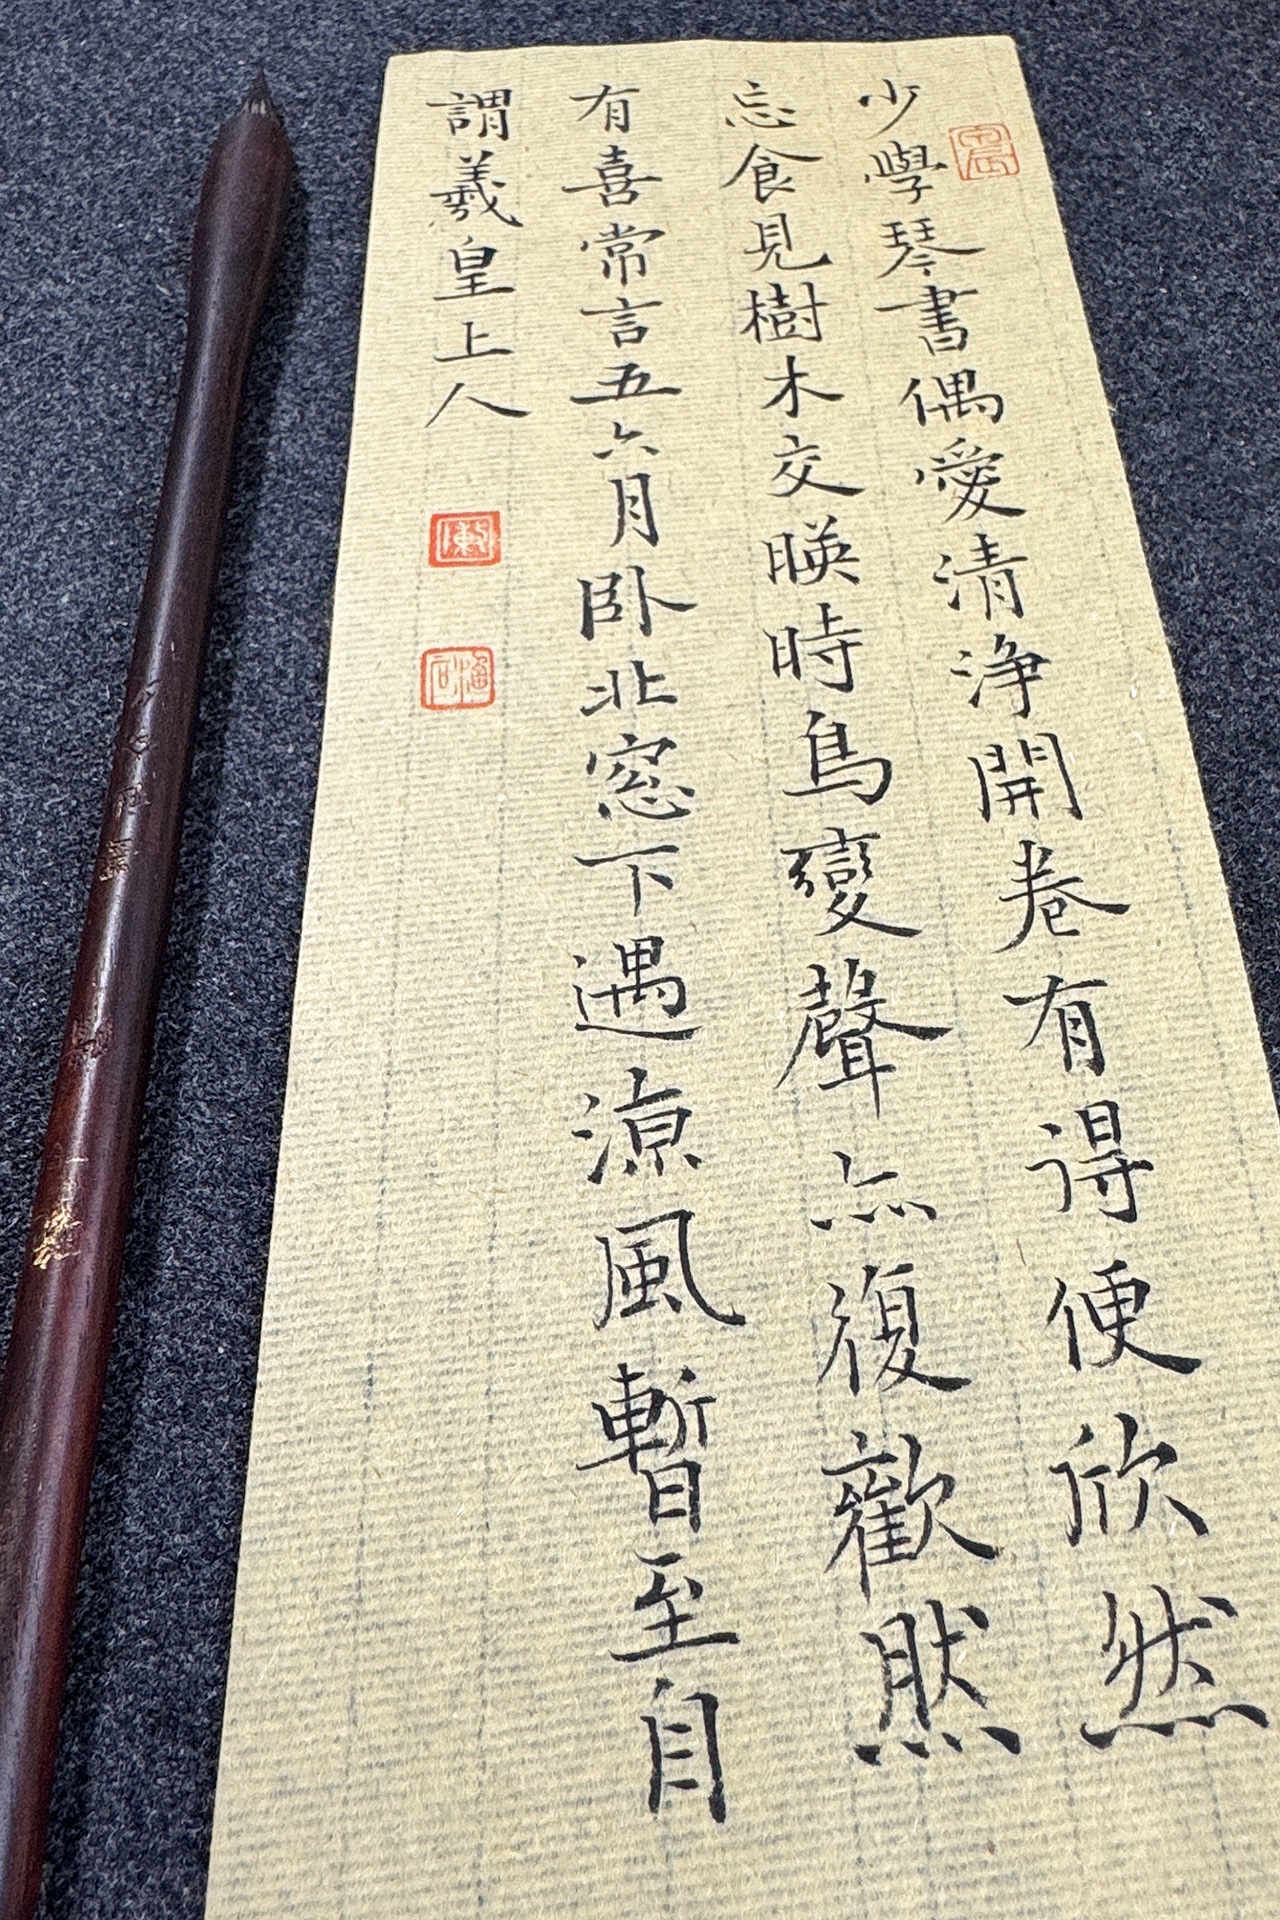 少學琴書偶愛清淨開卷有得便欣然
忘食見樹木交暎時鳥變聲亦復歡然
有喜常言五六月卧北窓下遇涼風暫至自
謂羲皇上人